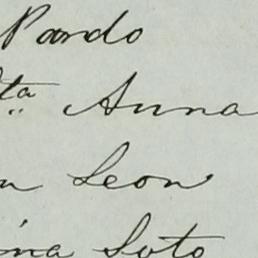 Pardo
ta Anna
n Leon
ina Soto